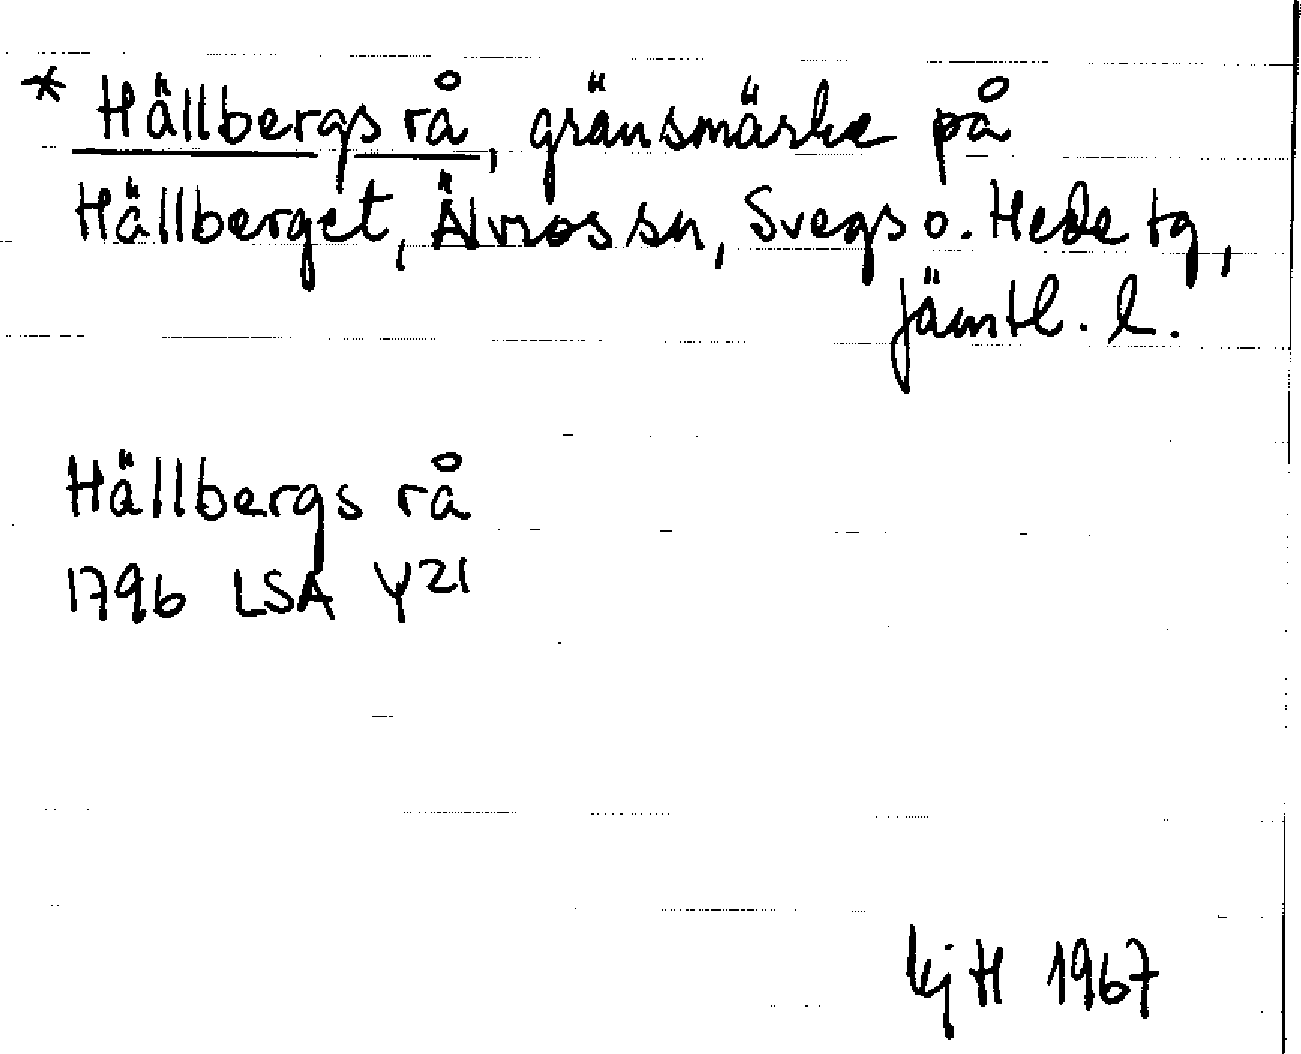 * Hällbergs rå, gränsmärke på
Hällberget, Älvros sn, Svegs o. Hede tg,
Jämtl. l.
Hällbergs rå
1796 LSA Y21
kjH 1967